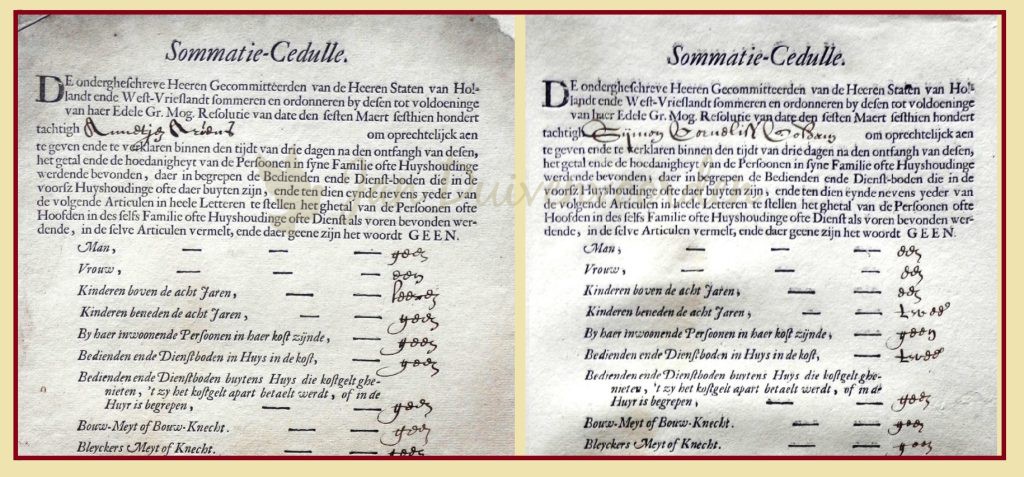 Sommatie-Cedulle.
DE ondergheſchreve Heeren Gecommitteerden van de Heeren Staten van Hol-
landt ende Weſt-Vrieſlandt sommeren en ordonneren by deſen tot voldoeninge
van haer Edele Gr. Mog. Reſolutie van date den ſeſten Maert ſeſthien hondert
tachtigh om oprechtelijck aen
te geven ende te verklaren binnen den tijdt van drie dagen na den ontfangh van deſen,
het getal ende de hoedanigheyt van de Perſoonen in ſyne Familie ofte Huyshoudinge
werdende bevonden, daer in begrepen de Bedienden ende Dienſt-boden die in de
voorſz Huyshoudinge ofte daer buyten zijn, ende ten dien eynde nevens yeder van
de volgende Articulen in heele Letteren te ſtellen het ghetal van de Perſoonen ofte
Hoofden in des ſelfs Familie ofte Huyshoudinge ofte Dienſt als voren bevonden wer-
dende, in de ſelve Articulen vermelt, ende daer geene zijn het woordt GEEN.
Man, — — — geen
Vrouw, — — — een
Kinderen boven de acht Jaren, — —
Kinderen beneden de acht Jaren, — — geen
By haer inwoonende Perſoonen in haer koſt zijnde, — geen
Bedienden ende Dienſtboden in Huys in de koſt, — geen
Bedienden ende Dienſtboden buytens Huys die koſtgelt ghe-
nieten, 't zy het koſtgelt apart betaelt werdt, of in de
Huyr is begrepen, — — geen
Bouw-Meyt of Bouw-Knecht. — — geen
Bleyckers Meyt of Knecht. — — geen
Sommatie-Cedulle.
DE ondergheſchreve Heeren Gecommitteerden van de Heeren Staten van Hol-
landt ende Weſt-Vrieſlandt sommeren en ordonneren by deſen tot voldoeninge
van haer Edele Gr. Mog. Reſolutie van date den ſeſten Maert ſeſthien hondert
tachtigh Sijmon Cornelis om oprechtelijck aen
te geven ende te verklaren binnen den tijdt van drie dagen na den ontfangh van deſen,
het getal ende de hoedanigheyt van de Perſoonen in ſyne Familie ofte Huyshoudinge
werdende bevonden, daer in begrepen de Bedienden ende Dienſt-boden die in de
voorſz Huyshoudinge ofte daer buyten zijn, ende ten dien eynde nevens yeder van
de volgende Articulen in heele Letteren te ſtellen het ghetal van de Perſoonen ofte
Hoofden in des ſelfs Familie ofte Huyshoudinge ofte Dienſt als voren bevonden wer-
dende, in de ſelve Articulen vermelt, ende daer geene zijn het woordt GEEN.
Man, — — — een
Vrouw, — — — een
Kinderen boven de acht Jaren, — — een
Kinderen beneden de acht Jaren, — — twee
By haer inwoonende Perſoonen in haer koſt zijnde, — geen
Bedienden ende Dienſtboden in Huys in de koſt, — twee
Bedienden ende Dienſtboden buytens Huys die koſtgelt ghe-
nieten, 't zy het koſtgelt apart betaelt werdt, of in de
Huyr is begrepen, — — geen
Bouw-Meyt of Bouw-Knecht. — — geen
Bleyckers Meyt of Knecht. — — geen